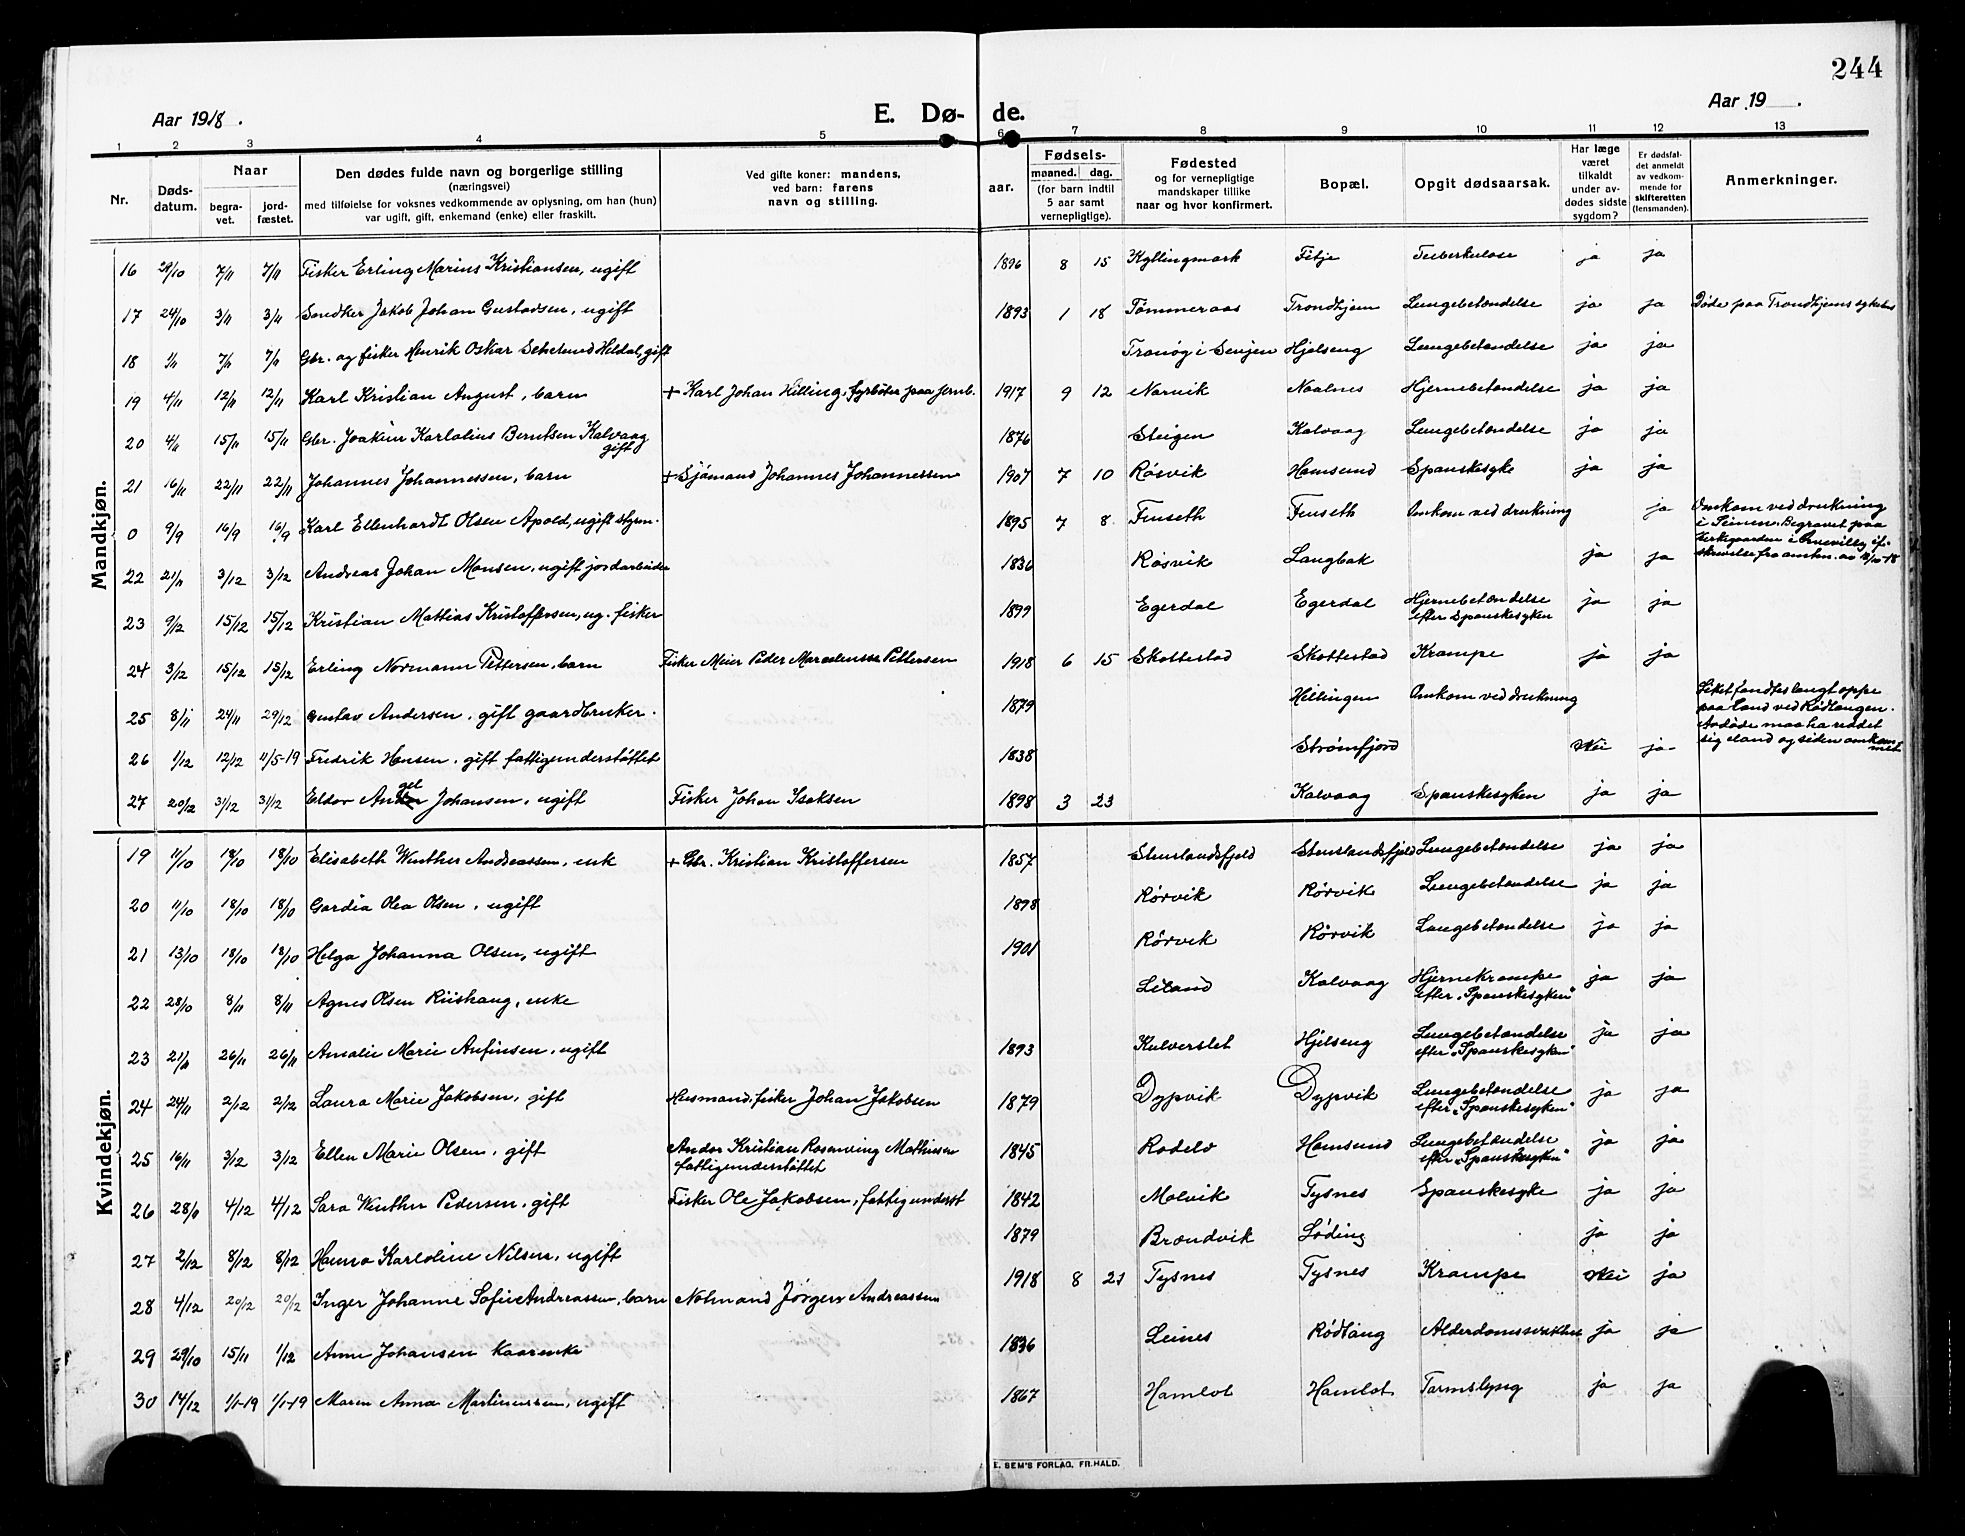 244
Aar 1918.
E. Dø- de.
Aar 19 .
1 2 3 4 5 6 7 8 9 10 11 12 13
Nr.
Døds-
datum.
Naar
begra-
vet.
jord-
fæstet.
Den dødes fulde navn og borgerlige stilling
(næringsvei)
med tilføielse for voksnes vedkommende av oplysning, om han (hun)
var ugift, gift, enkemand (enke) eller fraskilt.
Ved gifte koner: mandens,
ved barn: farens
navn og stilling.
aar.
Fødsels-
maaned. dag.
(for barn indtil
5 aar samt
vernepligtige).
Fødested
og for vernepligtige
mandskaper tillike
naar og hvor konfirmert.
Bopæl.
Opgit dødsaarsak.
Har læge
været
tilkaldt
under av-
dødes sidste
sygdom?
Er dødsfal-
det anmeldt
av vedkom-
mende for
skifteretten
(lensmanden).
Anmerkninger.
Mandkjøn.
16 29/10 7/11 7/11 Fisker Erling Marius Kristiansen, ugift 1896 8 15 Kyllingmark Fitje Tuberkulose ja ja
17 24/10 3/11 3/11 Snedker Jakob Johan Gustavsen, ugift 1893 1 18 Tømmeraas Trondhjem Lungebetændelse ja ja Døde paa Trondhjems sykehus
18 1/11 7/11 7/11 Gbr. og fisker Henrik Oskar Heldal, gift Tranøy i Senjen Hjelseng Lungebetændelse ja ja
19 4/11 12/11 12/11 Karl Kristian August, barn + Karl Johan Hilling, fyrbøter paa jernb. 1917 9 12 Narvik Naalnes Hjernebetændelse ja ja
20 4/11 15/11 15/11 Gbr. Joakim Karlotius Berntsen Kalvaag
gift 1876 Steigen Kalvaag Lungebetændelse ja ja
21 16/11 22/11 22/11 Johannes Johannessen, barn + Sjømand Johannes Johannessen 1907 7 10 Røsvik Hamsund Spanskesyke ja ja
0 9/9 16/9 16/9 Karl Ellenhardt Olsen Apold, ugift styrm. 1895 7 8 Finseth Finseth Omkom ved drukning ja Omkom ved drukning
i Seinen. Begravet paa
kirkegaarden i if.
skrivelse fra amtm. av 12/10-18
22 21/11 3/12 3/12 Andreas Johan Monsen, ugift jordarbeider 1836 Røsvik Langbak ja ja
23 9/12 15/12 15/12 Kristian Mathias Kristoffersen, ug. fisker 1899 Egerdal Egerdal Hjernebetændelse
efter Spanskesyken ja ja
24 3/12 15/12 15/12 Erling Normann Pettersen, barn Fisker Meier Peder Marselius Pettersen 1918 6 15 Skottestad Skottestad Krampe ja ja
25 8/11 24/11 29/12 Gustav Andersen, gift gaardbruker. 1879 Hellingen Omkom ved drukning Liket fandtes langt oppe
paa land ved Rødtangen.
Avdøde maa ha reddet
sig iland og siden omkom-
met
26 1/12 12/12 11/5-19 Fredrik Hansen, gift fattigunderstøttet 1838 Strømfjord Nei ja
27 20/12 31/12 31/12 Eldor Angel Johansen, ugift Fisker Johan Isaksen 1898 3 23 Kalvaag Spanskesyken ja ja
Kvindekjøn.
19 11/10 18/10 18/10 Elisabeth Winther Andreassen, enk + Gbr. Kristian Kristoffersen 1857 Stenslandsfjeld Stenslandsfjeld Lungebetændelse ja ja
20 11/10 18/10 18/10 Gardia Olea Olsen, ugift 1898 Rørvik Rørvik Lungebetændelse ja ja
21 13/10 18/10 18/10 Helga Johanna Olsen, ugift 1901 Rørvik Rørvik Lungebetændelse ja ja
22 28/10 8/11 8/11 Agnes Olsen Riishaug, enke Leland Kalvaag Hjernekrampe
efter „Spanskesyken" ja ja
23 21/11 26/11 26/11 Amalie Marie Anfinsen, ugift 1893 Kulverslet Hjelseng Lungebetændelse
efter „Spanskesyken" ja ja
24 24/11 2/12 2/12 Laura Marie Jakobsen, gift Husmand, fisker Johan Jakobsen 1879 Dypvik Dypvik Lungebetændelse
efter „Spanskesyken" ja ja
25 16/11 3/12 3/12 Ellen Marie Olsen, gift Andor Kristian Rosenving Mathisen
fattigunderstøttet 1845 Rodelv Hamsund Lungebetændelse
efter „Spanskesyken" ja ja
26 28/11 4/12 4/12 Sara Winther Pedersen, gift Fisker Ole Jakobsen, fattigunderst 1842 Molvik Tysnes Spanskesyke ja ja
27 2/12 8/12 8/12 Hanna Karloline Nilsen, ugift 1879 Brændvik Løding ja ja
28 4/12 20/12 20/12 Inger Johanne Sofie Andreassen, barn Notmand Jørgen Andreassen 1918 8 21 Tysnes Tysnes Krampe Nei ja
29 29/10 15/11 1/12 Anne Johansen kaarenke 1836 Leines Rødtang Alderdomssvakhet ja ja
30 14/12 1/1-19 1/1-19 Maren Anna Martinussen, ugift 1867 Hamlot Hamlot Tarmslyng ja ja
E. SEM'S FORLAG, FR.HALD.